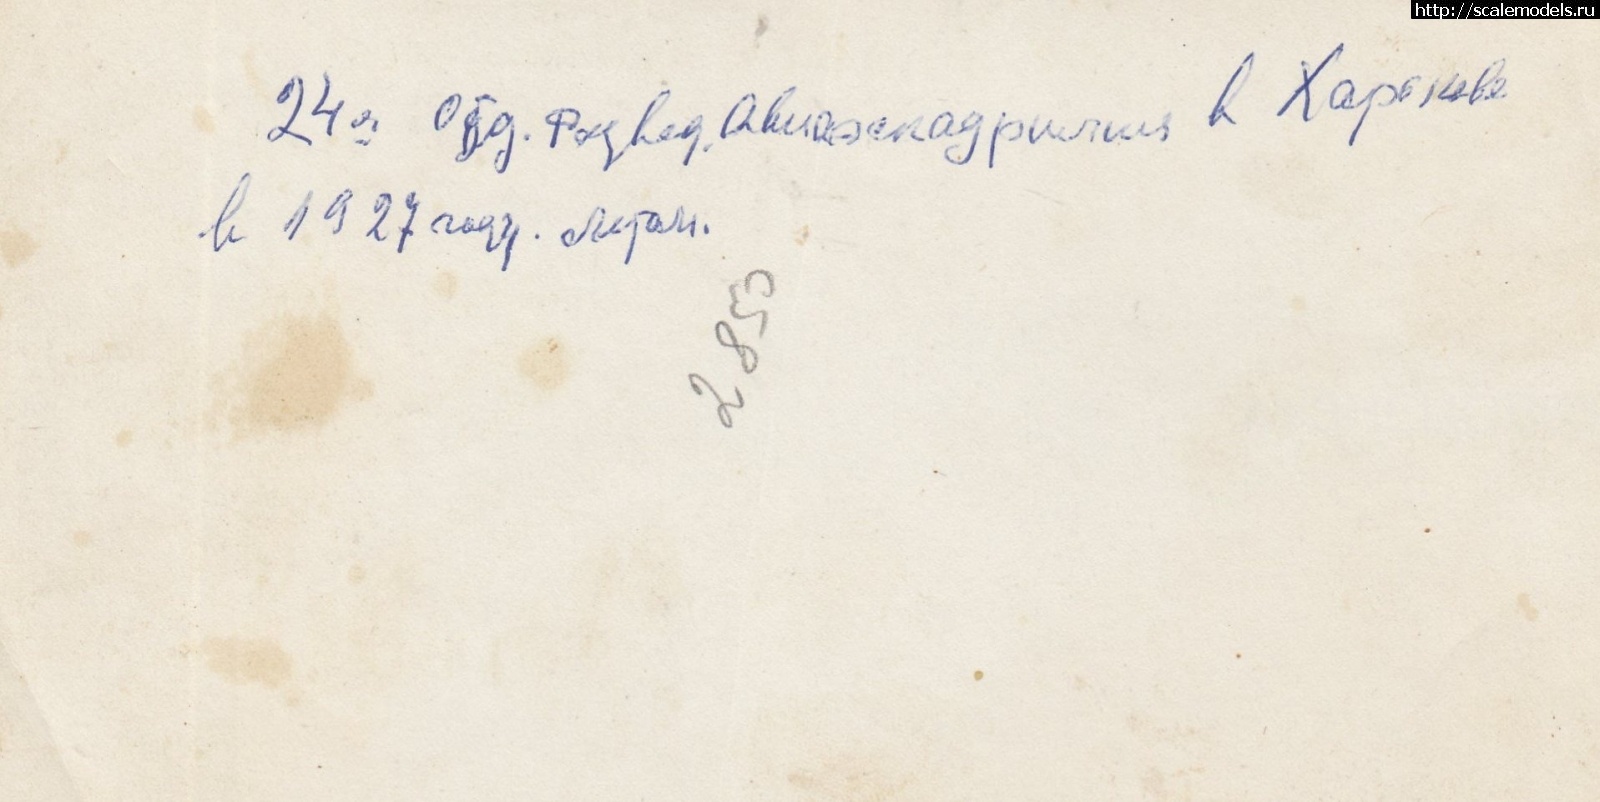 http://scalemodels.ru
24я Отд. Развед. Авиаэскадрилия в Харькове
в 1927 году. летом.
285